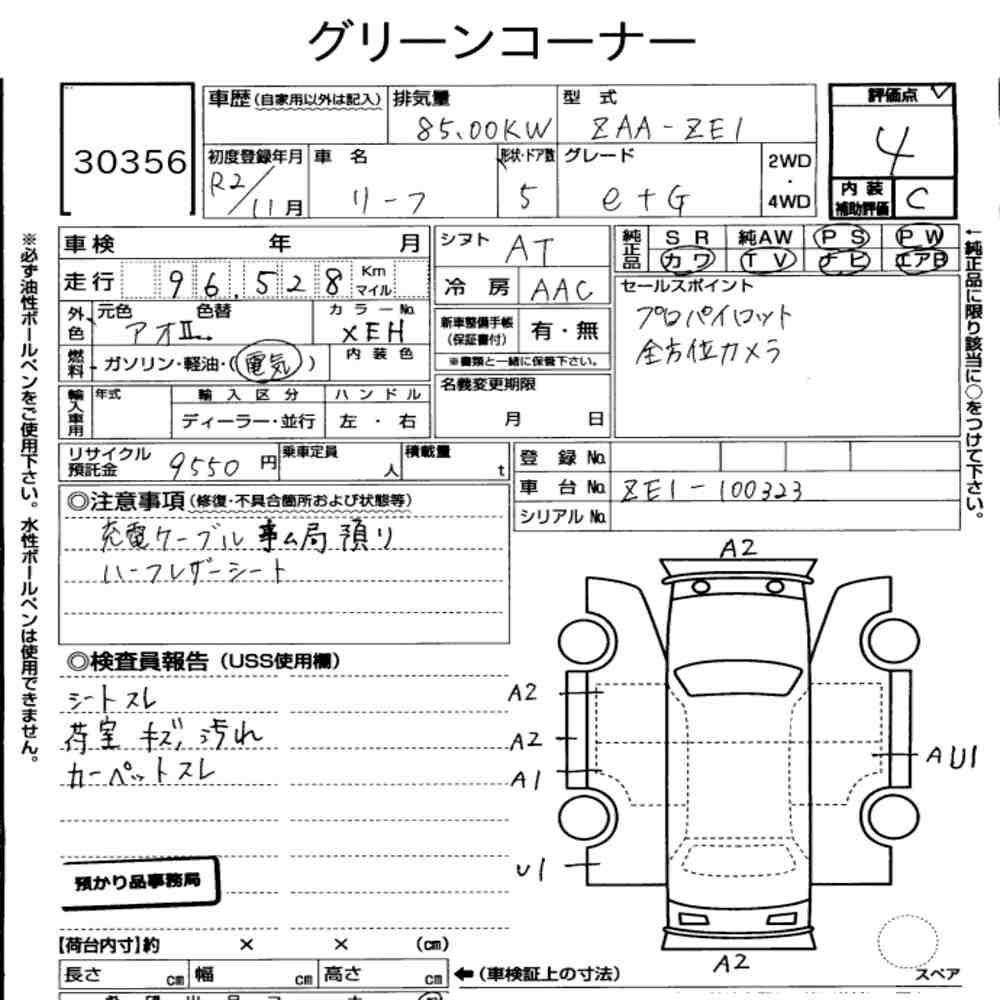 グリーンコーナー
30356
車歴(自家用以外は記入)
排気量
85.00KW
型 式
ZAA-ZE1
評価点
4
内装補助評価
C
初度登録年月
R2/11月
車 名
リーフ
形状・ドア数
5
グレード
e+G
2WD
・
4WD
車検 年 月
シフト
AT
純正品
SR 純AW PS PW
カワ TV ナビ エアB
走行 96,528 Km マイル
冷房
AAC
セールスポイント
プロパイロット
全方位カメラ
外色
元色 色替
アオII
カラーNo.
XEH
新車整備手帳
(保証書付)
有・無
※書類と一緒に保管下さい。
燃料
ガソリン・軽油・(電気)
内装色
名義変更期限
月 日
輸入車用
年式
輸入区分
ディーラー・並行
ハンドル
左・右
リサイクル預託金 9550円
乗車定員 人
積載量 t
登録No.
車台No. ZE1-100323
シリアルNo.
◎注意事項(修復・不具合箇所および状態等)
充電ケーブル 事ム局預り
ハーフレザーシート
◎検査員報告(USS使用欄)
シートスレ
荷室 キズ、汚れ
カーペットスレ
預かり品事務局
【荷台内寸】約 × × (cm)
長さ cm 幅 cm 高さ cm
←(車検証上の寸法)
A2
A2
A2
A1
U1
AU1
A2
スペア
※必ず油性ボールペンをご使用下さい。水性ボールペンは使用できません。
←純正品に限り該当に○をつけて下さい。